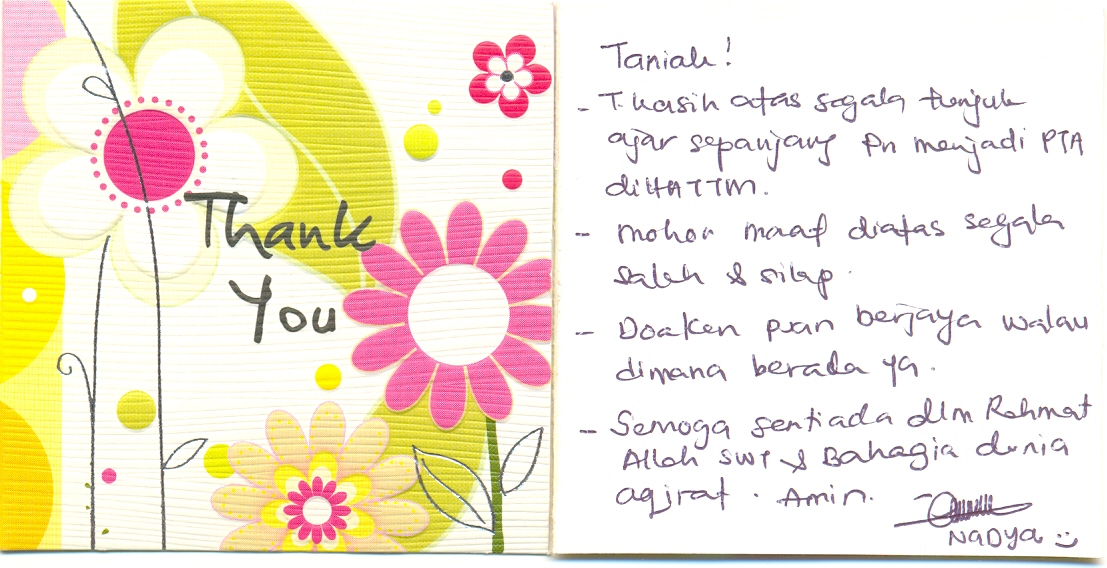 Thank
You
Taniah!
- T. kasih atas segala tunjuk
ajar sepanjang Pn menjadi PTA
diHATTM.
- mohon maaf diatas segala
salah & silap.
- Doaken puan berjaya walau
dimana berada ya.
- Semoga sentiada dlm Rahmat
Allah SWT & Bahagia dunia
aqirat. Amin.
NADYA :)